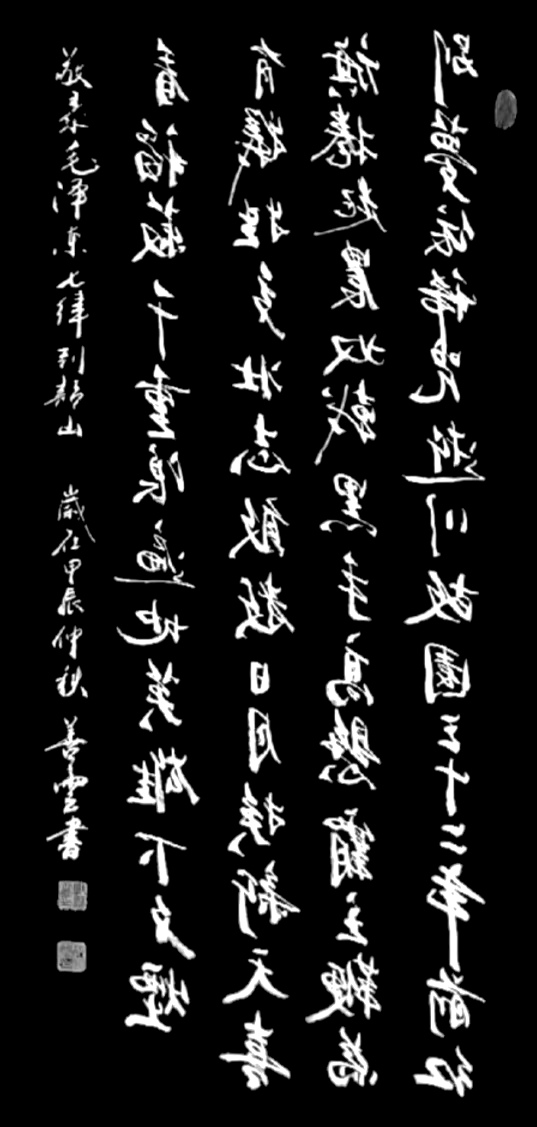 别夢依稀咒逝川故園三十二年前红
旗捲起農奴戟黑手高懸霸主鞭為
有犧牲多壮志敢教日月换新天喜
看稻菽千重浪遍地英雄下夕煙
敬录毛泽东七律到韶山 歲在甲辰仲秋 善雲書